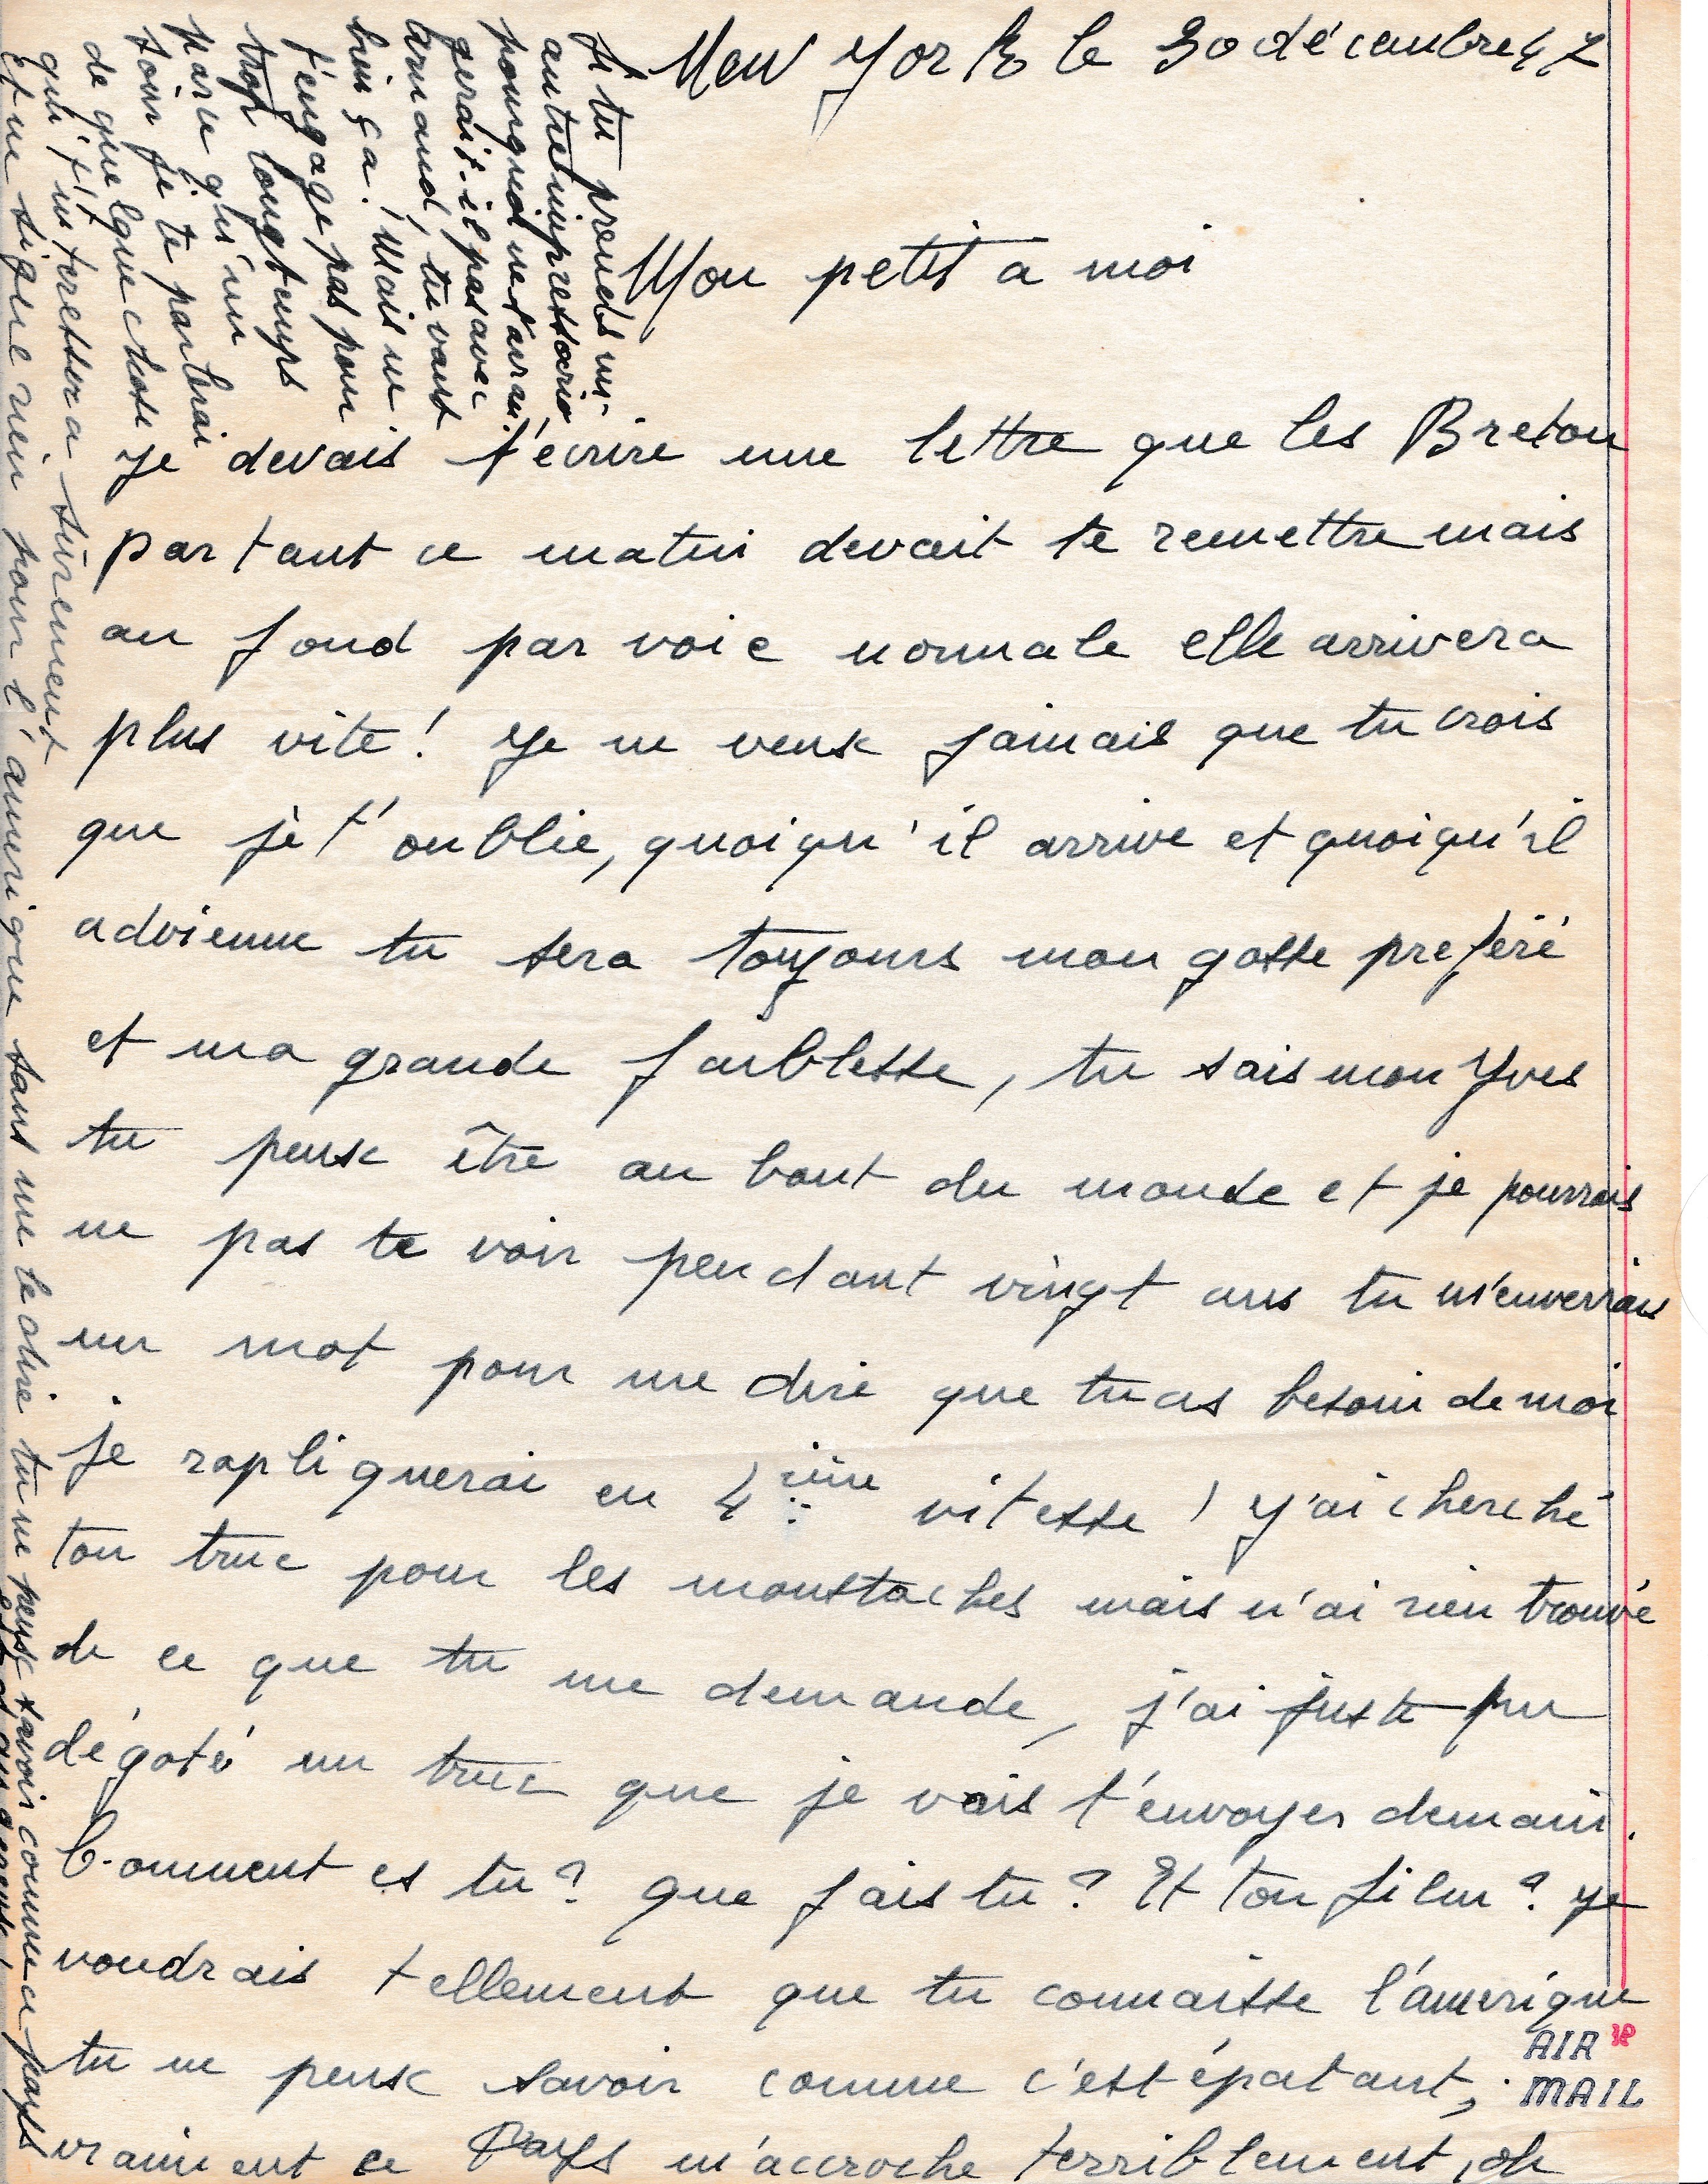 New York le 30 décembre 47
Mon petit à moi
Je devais t'écrire une lettre que les Breton
partant ce matin devait te remettre mais
au fond par voie normale elle arrivera
plus vite! Je ne veux jamais que tu crois
que je t'oublie, quoiqu'il arrive et quoiqu'il
advienne tu sera toujours mon gosse preféré
et ma grande faiblesse, tu sais mon Yves
tu peux être au bout du monde et je pourrais
ne pas te voir pendant vingt ans tu m'enverrais
un mot pour me dire que tu as besoin de moi
je rapliquerai en 4ième vitesse! J'ai cherché
ton truc pour les moustaches mais n'ai rien trouvé
de ce que tu me demande, j'ai juste pu
dégoté un truc que je vais t'envoyer demain.
Comment es tu? que fais tu? Et ton film? Je
voudrais tellement que tu connaisse l'amérique
tu ne peux savoir comme c'est épatant,
vraiment ce Pays m'accroche terriblement, oh
AIR
MAIL
Si tu prends un
autre impressario
pourquoi ne t'arran-
gerait-il pas avec
Armand, tu vaus
bien ça! Mais ne
t'engage pas pour
trop longtemps
parce qu'un
soir je te parlerai
de quelque chose
qui t'interessera sûrement
et ne signe rien pour l'amérique sans me le dire tu ne peux savoir comme ce pays